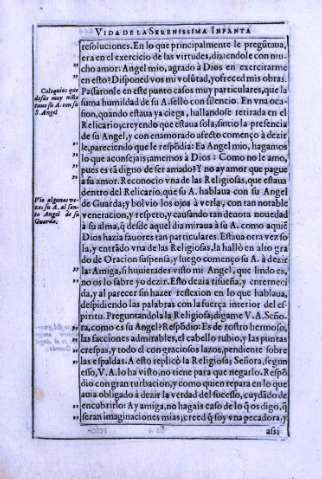 VIDA DE LA SERENISSIMA INFANTA
resoluciones. En lo que principalmente le pregũtaua,
era en el exercicio de las virtudes, diziendole con mu-
cho amor: Angel mio, agrado à Dios en exercitarme
en esto? Disponed vos mi volũtad, y ofreced mis obras.
Passaronle en este punto cosas muy particulares, que la
suma humildad de su A. sello con silencio. En vna oca-
sion, quando estaua ya ciega, hallandose retirada en el
Relicario, creyendo que estaua sola, sintio la presencia
de su Angel, y con enamorado afecto començo à dezir
le, pareciendo que le respõdia: Ea Angel mio, hagamos
lo que aconsejais; amemos à Dios: Como no le amo,
pues es tã digno de ser amado? Y no ay amor que pague
à su amor. Reconocio vna de las Religiosas, que estaua
dentro del Relicario, que su A. hablaua con su Angel
de Guarda; y boluio los ojos à verla, con tan notable
veneracion, y respeto, y causando tan deuota nouedad
à su alma, q̃ desde aquel dia miraua à su A. como aquiẽ
Dios hazia fauores tan particulares. Estaua otra vez so
la, y entrãdo vna de las Religiosas, la hallò en alto gra
do de Oracion suspensa, y luego començò su A. à dezir
la: Ay Amiga, si huuierades visto mi Angel, que lindo es,
no os lo sabre yo dezir. Esto dezia risueña, y enterneci
da, y al parecer sin hazer reflexion en lo que hablaua,
despidiendo las palabras con la fuerça interior del es-
piritu. Preguntandola la Religiosa; digame V. A. Seño-
ra, como es su Angel? Respõdio: Es de rostro hermoso,
las facciones admirables, el cabello rubio, y las puntas
crespas, y todo el con graciosos lazos, pendiente sobre
las espaldas. A esto replicò la Religiosa; Señora, segun
esso, V. A. lo ha visto, no tiene para que negarlo. Respõ
dio con gran turbacion, y como quien repara en lo que
auia obligado à dezir la verdad del sucesso, cuydãdo de
encubrirlo: Ay amiga, no hagais caso de lo q̃ os digo, q̃
seran imaginaciones mias; creed q̃ soy vna pecadora, y
assi
Coloquios que
su A. con su
S. Angel
Vio algunas ve-
zes su A. al San-
to Angel de su
Guarda.